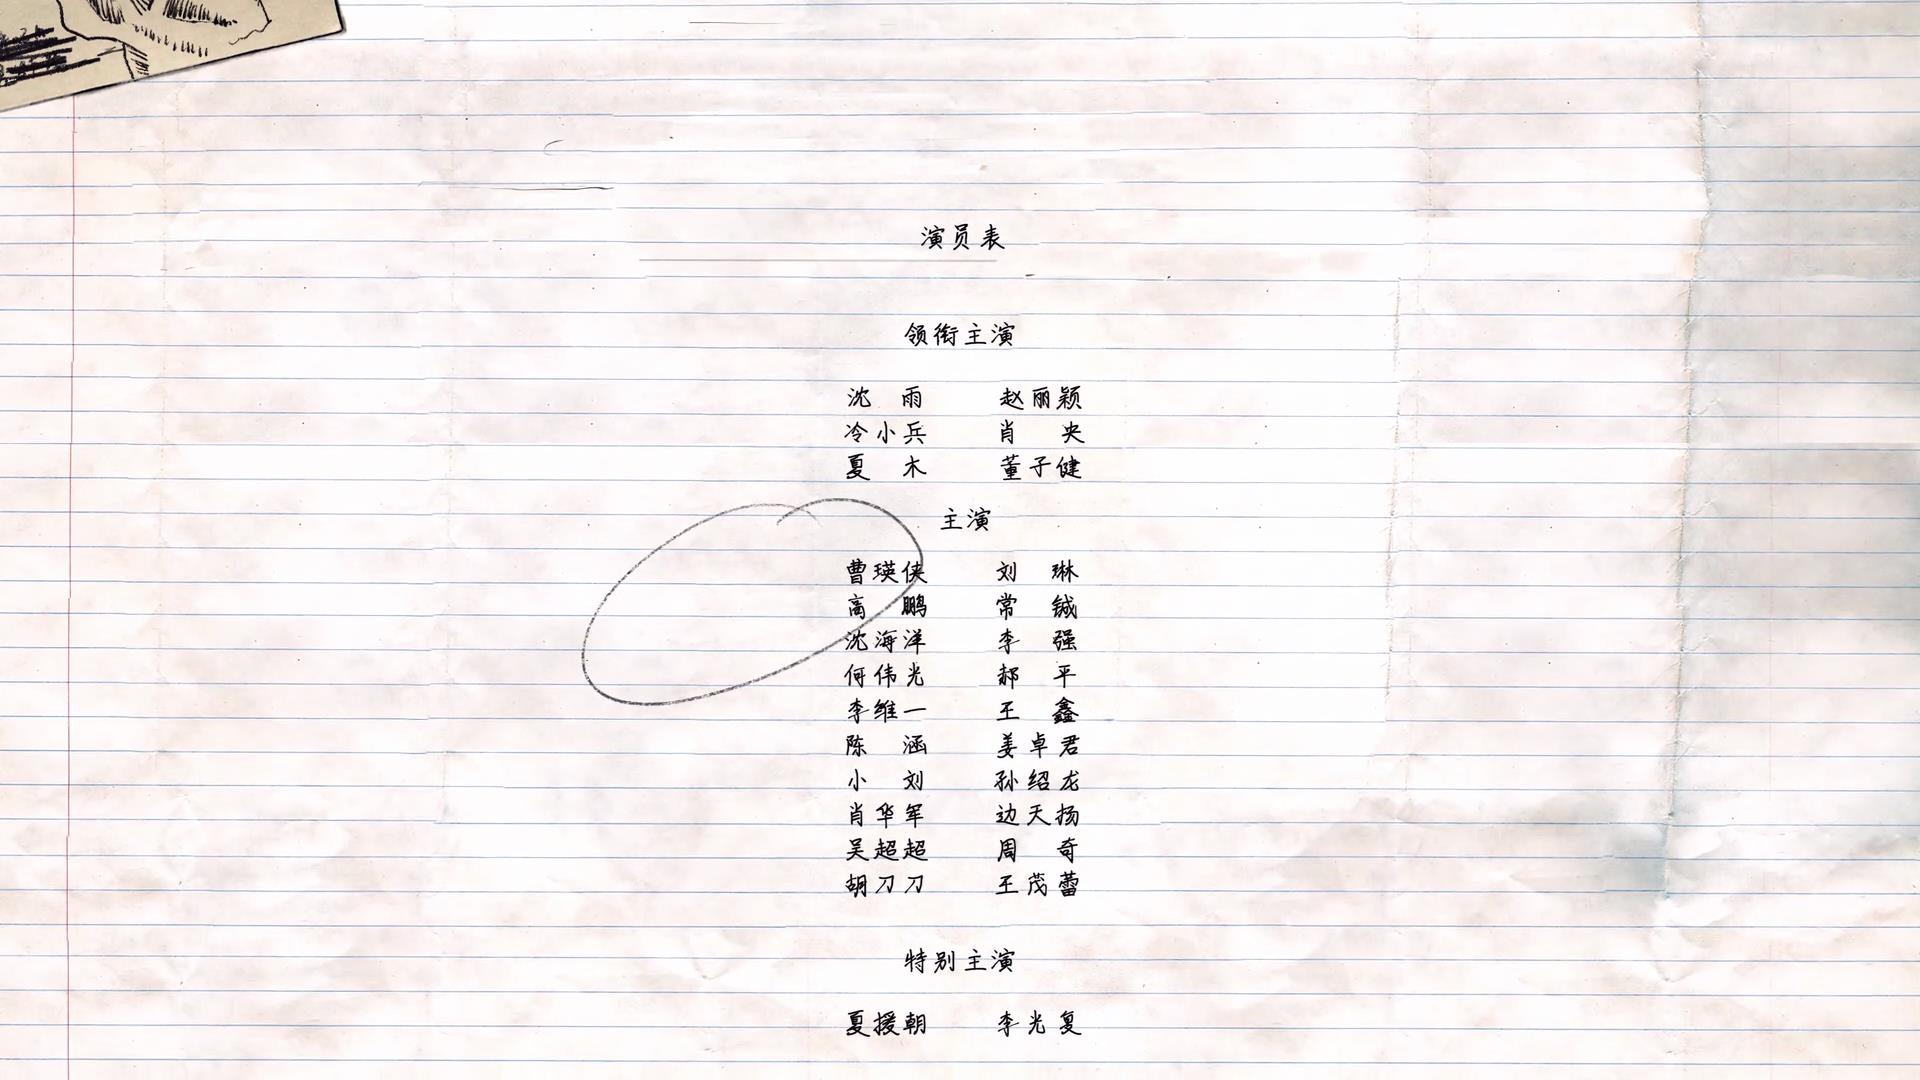 演员表
领衔主演
沈雨 赵丽颖
冷小兵 肖央
夏木 董子健
主演
曹瑛侠 刘琳
高鹏 常铖
沈海洋 李强
何伟光 郝平
李维一 王鑫
陈涵 姜卓君
小刘 孙绍龙
肖华军 边天扬
吴超超 周奇
胡刀刀 王茂蕾
特别主演
夏援朝 李光复